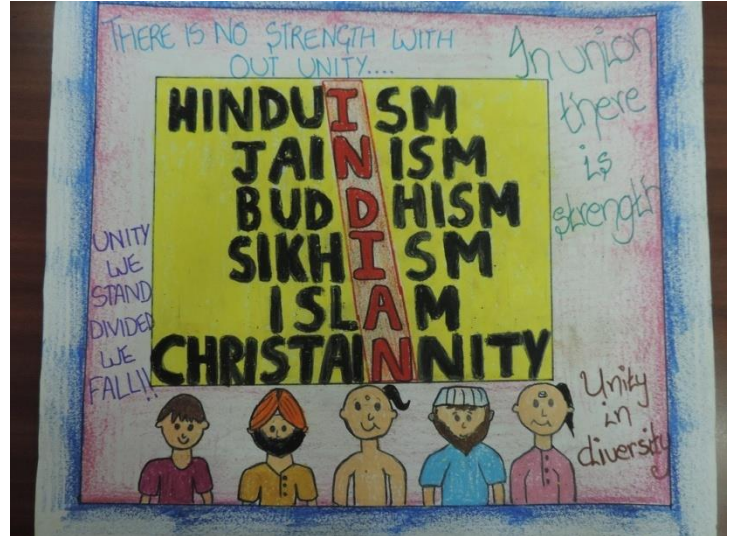 THERE IS NO STRENGTH WITH
OUT UNITY....
In union
there
is
strength
HINDUISM
JAINISM
BUDDHISM
SIKHISM
ISLAM
CHRISTAINNITY
UNITY
WE
STAND
DIVIDED
WE
FALL!!
Unity
in
diversity